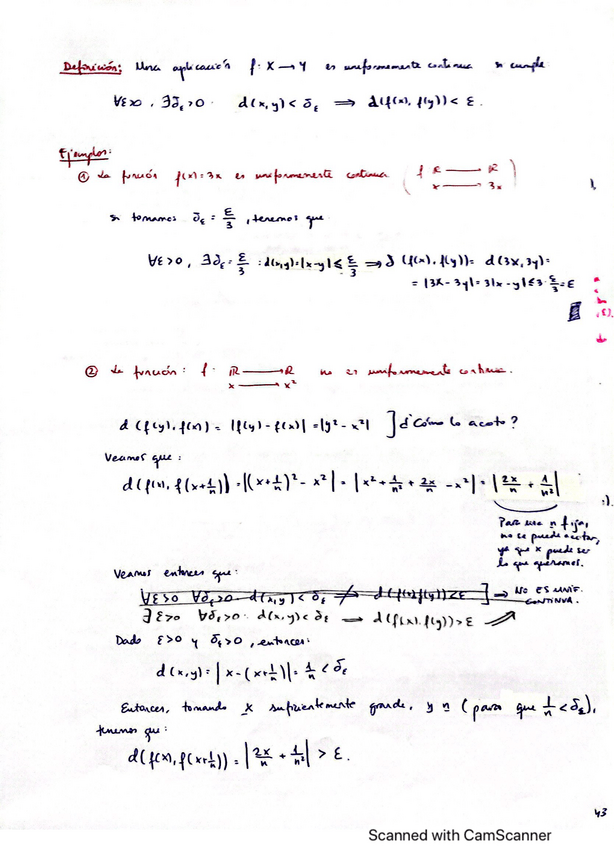 Definición: Una aplicación f: X → Y es uniformemente continua si cumple
∀ε>0, ∃δ_ε>0 : d(x,y) < δ_ε ⟹ d(f(x), f(y)) < ε.
Ejemplos:
① La función f(x)=3x es uniformemente continua ( f ℝ → ℝ
x → 3x )
si tomamos δ_ε = ε/3, tenemos que
∀ε>0, ∃δ_ε = ε/3 : d(x,y)=|x-y| ≤ ε/3 ⟹ d(f(x), f(y)) = d(3x,3y) =
= |3x-3y| = 3|x-y| ≤ 3·ε/3 = ε
② La función: f: ℝ → ℝ no es uniformemente continua.
x → x²
d(f(y), f(x)) = |f(y) - f(x)| = |y² - x²| ] ¿Cómo lo acoto?
Veamos que:
d(f(x), f(x+1/n)) = |(x+1/n)² - x²| = |x² + 1/n² + 2x/n - x²| = |2x/n + 1/n²|
Para una n fija,
no se puede acotar,
ya que x puede ser
lo que queramos.
Veamos entonces que:
∀ε>0 ∀δ_ε>0 d(x,y) < δ_ε ⇏ d(f(x) f(y)) < ε ] → NO ES UNIF.
CONTINUA.
∃ε>0 ∀δ_ε>0 : d(x,y) < δ_ε → d(f(x), f(y)) > ε
Dado ε>0 y δ_ε>0, entonces:
d(x,y) = |x-(x+1/n)| = 1/n < δ_ε
Entonces, tomando x suficientemente grande, y n (para que 1/n < δ_ε),
tenemos que:
d(f(x), f(x+1/n)) = |2x/n + 1/n²| > ε.
43
Scanned with CamScanner